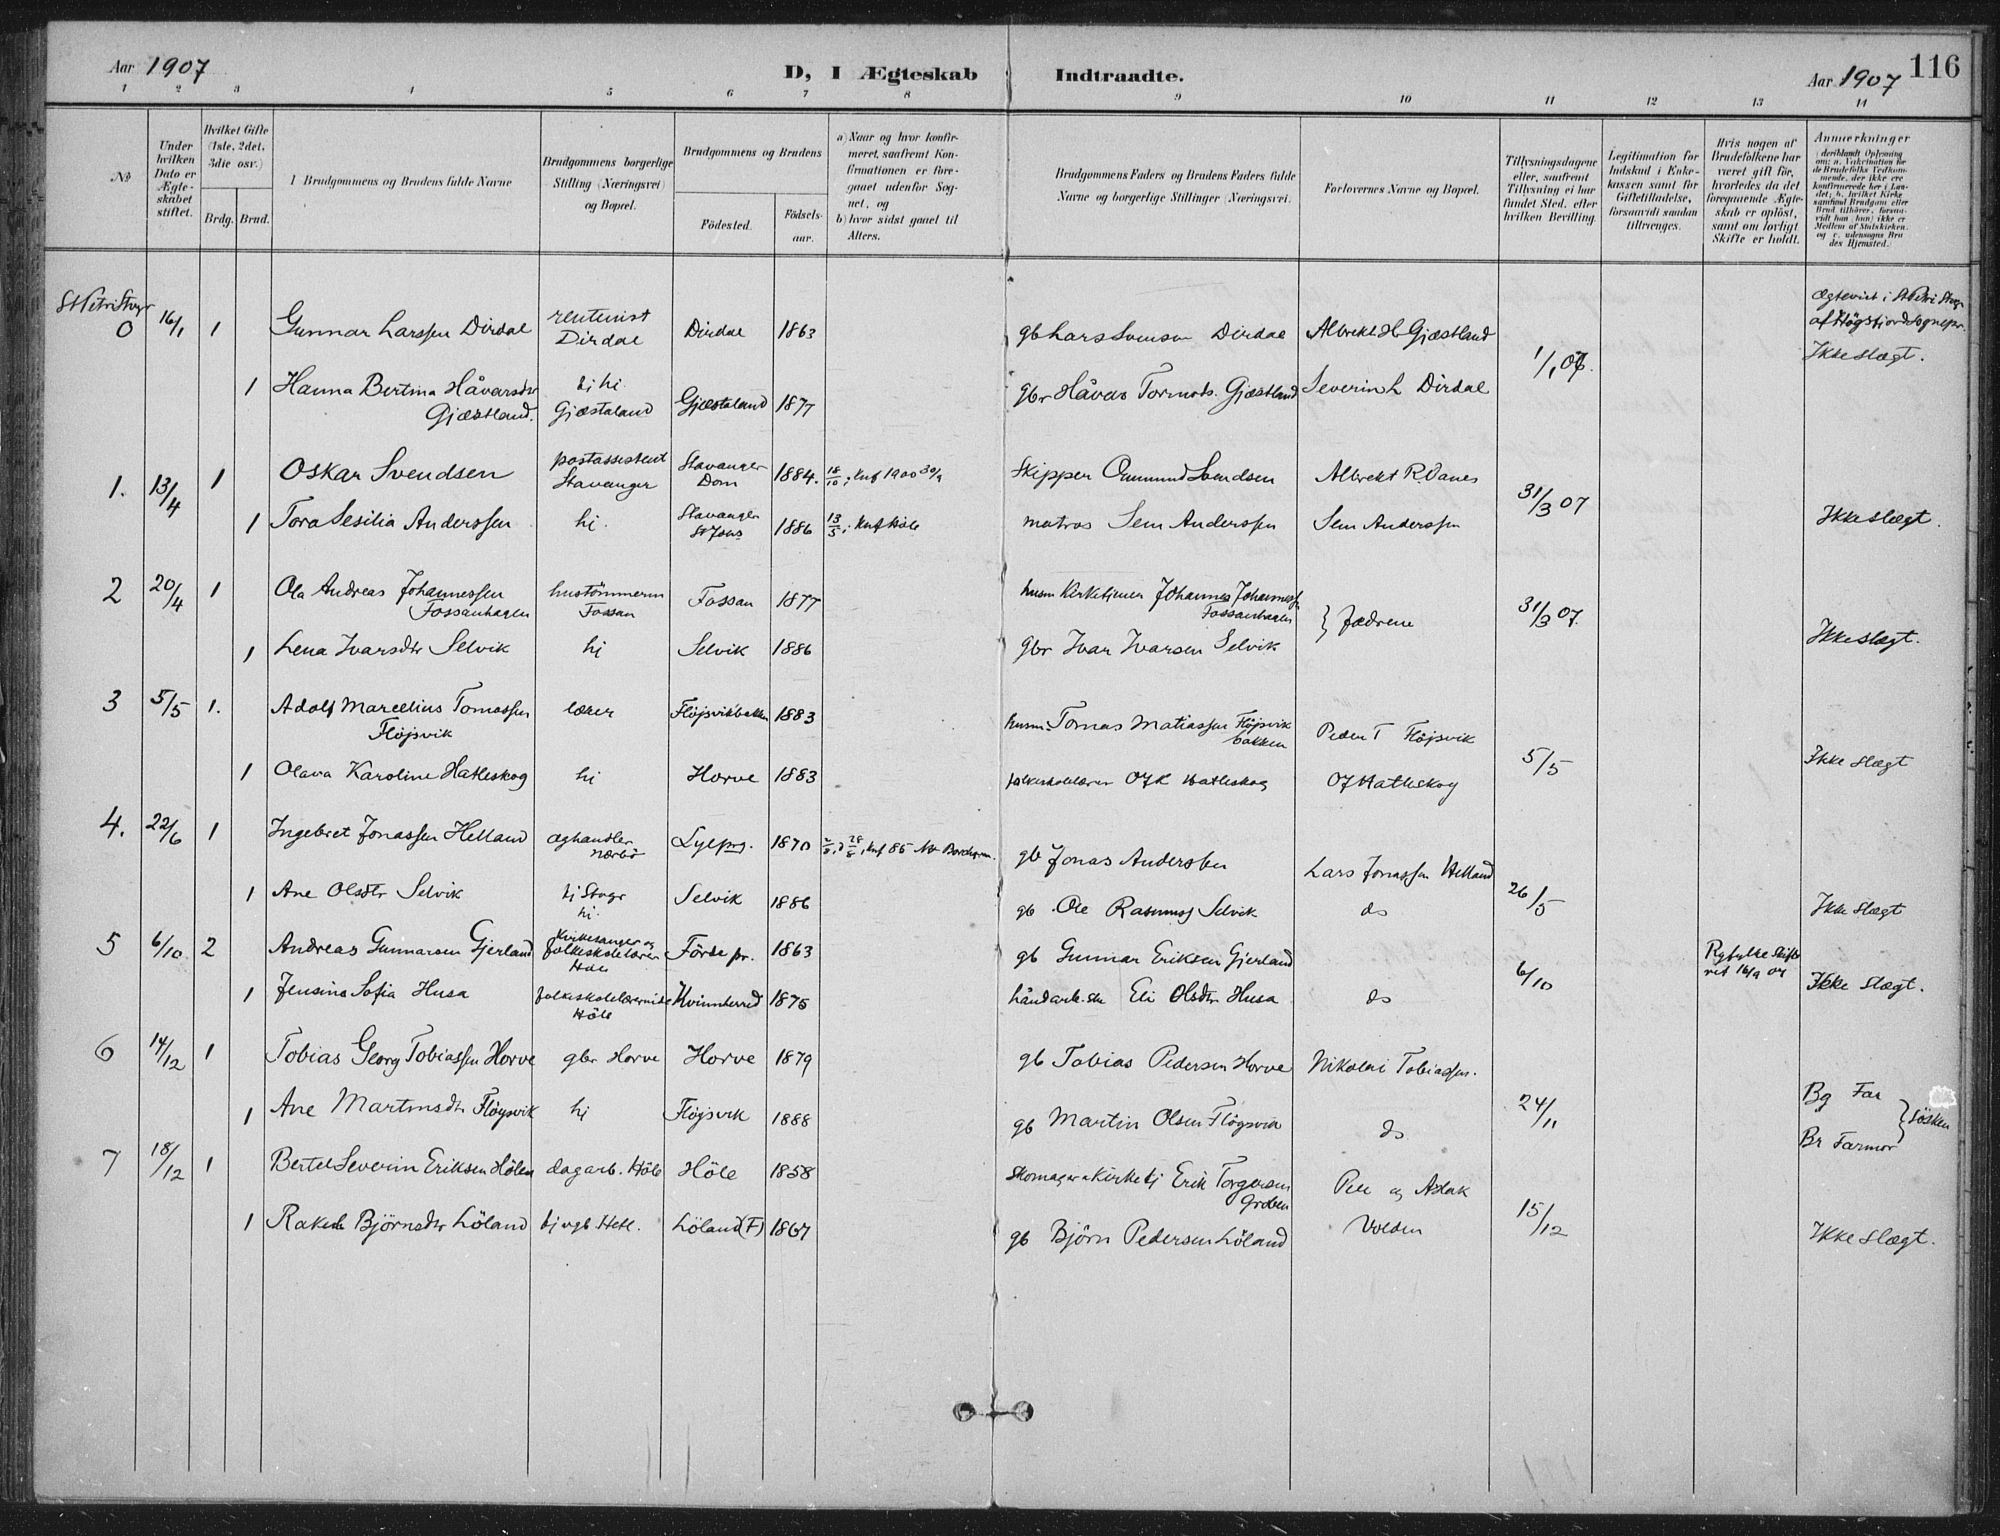 Aar 1907
D, I Ægteskab Indtraadte.
Aar 1907
116
1 2 3 4 5 6 7 8 9 10 11 12 13 14
No
Under hvilken Dato er Ægteskabet stiftet.
Hvilket Gifte (1ste, 2det, 3die osv.)
Brdg. Brud.
I Brudgommens og Brudens fulde Navne
Brudgommens borgerlige Stilling (Næringsvei) og Bopæl.
Brudgommens og Brudens
Fødested. Fødsels-aar.
a) Naar og hvor konfirmeret, saafremt Konfirmationen er foregaaet udenfor Sognet, og
b) hvor sidst gaaet til Alters.
Brudgommens Faders og Brudens Faders fulde Navne og borgerlige Stillinger (Næringsvei).
Forlovernes Navne og Bopæl.
Tillysningsdagene eller, saafremt Tillysning ei har fundet Sted, efter hvilken Bevilling.
Legitimation for Indskud i Enkekassen samt for Giftetilladelse, forsaavidt saadan tiltrænges.
Hvis nogen af Brudefolkene har været gift før, hvorledes da det foregaaende Ægteskab er opløst, samt om lovligt Skifte er holdt.
Anmerkninger
St Petri Stvgr
0 16/1 1 Gunnar Larssen Dirdal rentenist Dirdal Dirdal 1863 gb Lars Svensen Dirdal Albrekt H Gjæstland 1/1 07. Ægteviet i St Petri Stvgr af Høgsfjord Sognepr. Ikke slægt.
1 Hanna Bertina Håvarsdtr Gjæstland. tj hj Gjæstaland Gjæstaland 1877 gbr Håvar Tormods. Gjæstland Severin L Dirdal
1. 13/4 1 Oskar Svendsen postassistent Stavanger Stavanger Dom 1884. 18/10; knf 1900 30/9 Skipper Svendsen Albrekt R. Vanes 31/3 07 Ikke slægt.
1 Tora Sesilia Anderssen hj. Stavanger St Johs 1886 13/5; knf Høle matros Sem Anderssen Sem Anderssen
2 20/4 1 Ola Andreas Johannessen Fossanhagen hustömmerm Fossan Fossan 1877 husm Kirketjener Johannes Johannessen Fossanhagen } Fædrene 31/3 07. Ikke slægt.
1 Lena Ivarsdtr Selvik hj Selvik 1886 gbr Ivar Ivarsen Selvik
3 5/5 1. Adolf Marcelius Tomassen Flöjsvik lærer Flöjsvikbakken 1883 husm. Tomas Matiassen Flöjsvik bakken Peder T Flöjsvik 5/5 Ikke slægt
1 Olava Karoline Hatleskog hj Horve 1883 folkeskolelærer OJK Hatleskog OJ Hatleskog
4. 22/6 1 Ingebret Jonassen Helland æghandler Nærbö Lyeprs. 1870 28/8, knf 85 gb Jonas Anderssen Lars Jonassen Helland 26/5 Ikke slægt
1 Ane Olsdtr Selvik tj Stvgr hj. Selvik 1886 gb. Ole Rasmuss Selvik ds
5 6/10 2 Andreas Gunnarsen Gjerland Kirkesanger og folkeskolelærer Höle Förde pr. 1863 gb Gunnar Eriksen Gjerland 6/10 Ryfylke Skifteret 16/9 07 Ikke slægt.
1 Jensine Sofia Husa folkeskolelærerinde Höle Kvinnherred 1875 håndarb.ske Eli Olsdtr Husa ds
6 14/12 1 Tobias Georg Tobiassen Horve gbr Horve Horve 1879 gb Tobias Pedersen Horve Nikolai Tobiassen. 24/11 Bg Far } Br Farmor Sösken
1 Ane Martinsdtr Flöysvik hj Flöjsvik 1888 gb Martin Olsen Flögsvik ds
7 18/12 1 Bertel Severin Eriksen Hölen dagarb. Höle Höle 1858 Skomager Kirketj Erik Torgersen Groben Per og Aslak Volden 15/12 Ikke slægt.
1 Rakel Björnsdtr Löland tj Löland (F) 1867 gb Björn Pedersen Löland